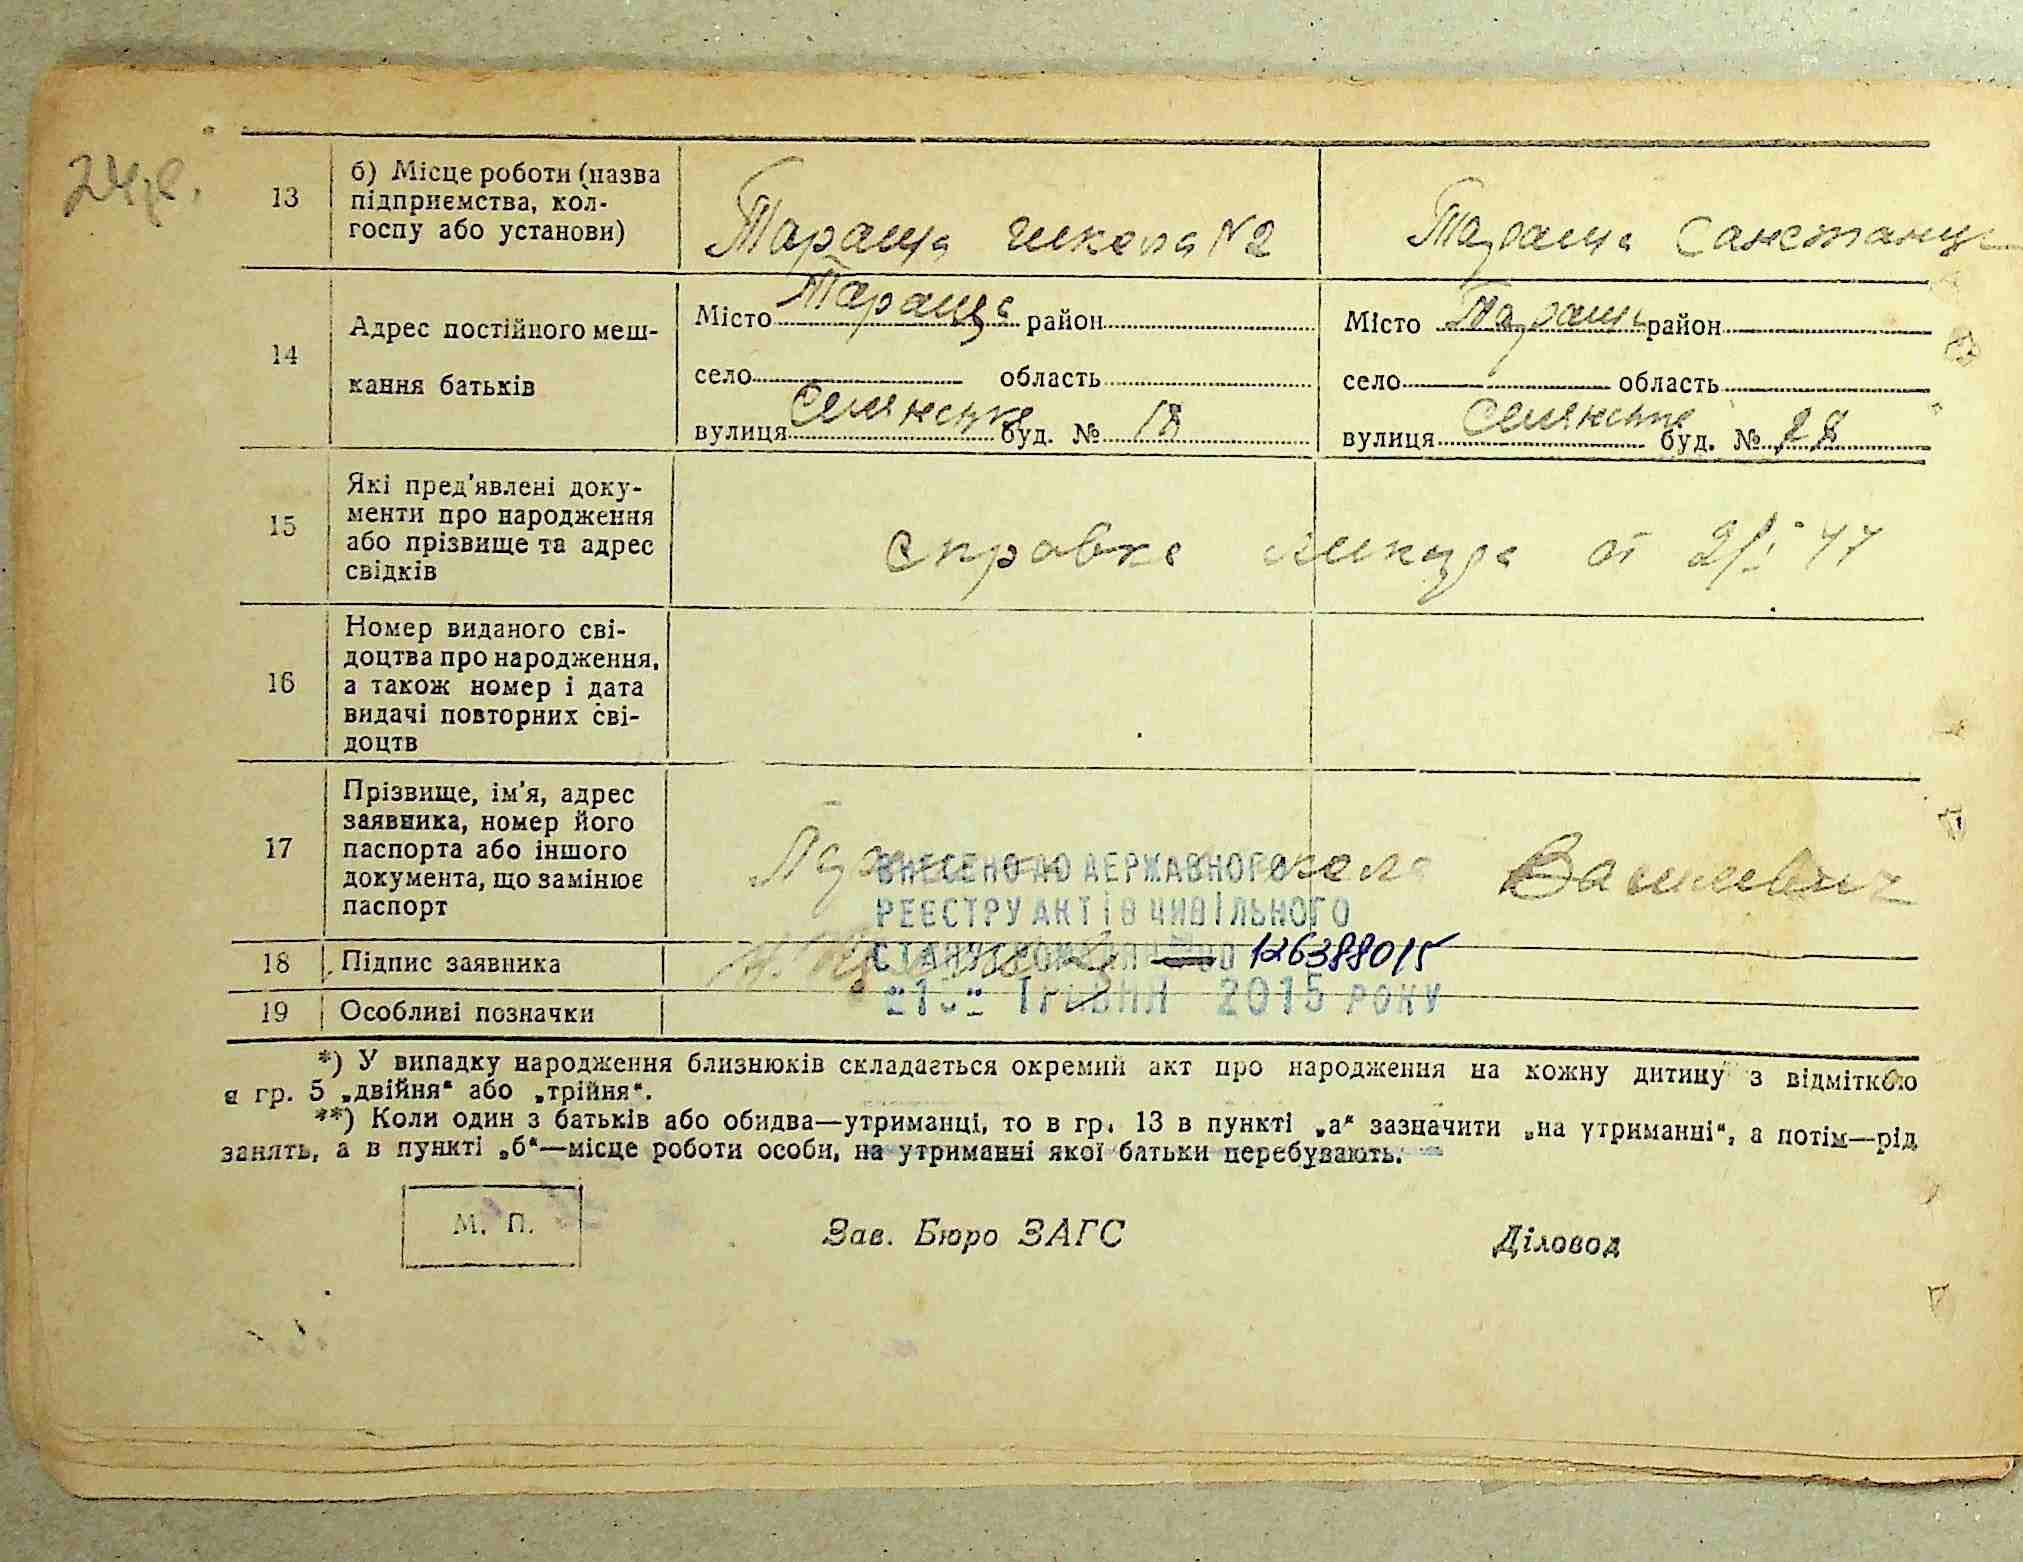 13
б) Місце роботи (назва
підприємства, кол-
госпу або установи)
Тараща школа N2
Тараща Санстанц
14
Адрес постійного меш-
кання батьків
Місто Тараща район
село область
вулиця Селянська буд. № 18
Місто Тараща район
село область
вулиця Селянська буд. № 28
15
Які пред'явлені доку-
менти про народження
або прізвище та адрес
свідків
справка от 2/I 47
16
Номер виданого сві-
доцтва про народження,
а також номер і дата
видачі повторних сві-
доцтв
17
Прізвище, ім'я, адрес
заявника, номер його
паспорта або іншого
документа, що замінює
паспорт
Василевич
ВНЕСЕНО ДО ДЕРЖАВНОГО
РЕЄСТРУ АКТІВ ЦИВІЛЬНОГО
СТАНУ ГРОМАДЯН 126388015
ТРАВНЯ 2015 РОКУ
18
Підпис заявника
19
Особливі позначки
*) У випадку народження близнюків складається окремий акт про народження на кожну дитину з відміткою
в гр. 5 „двійня“ або „трійня“.
**) Коли один з батьків або обидва—утриманці, то в гр. 13 в пункті „а“ зазначити „на утриманні“, а потім—рід
занять, а в пункті „б“—місце роботи особи, на утриманні якої батьки перебувають.
М. П.
Зав. Бюро ЗАГС
Діловод